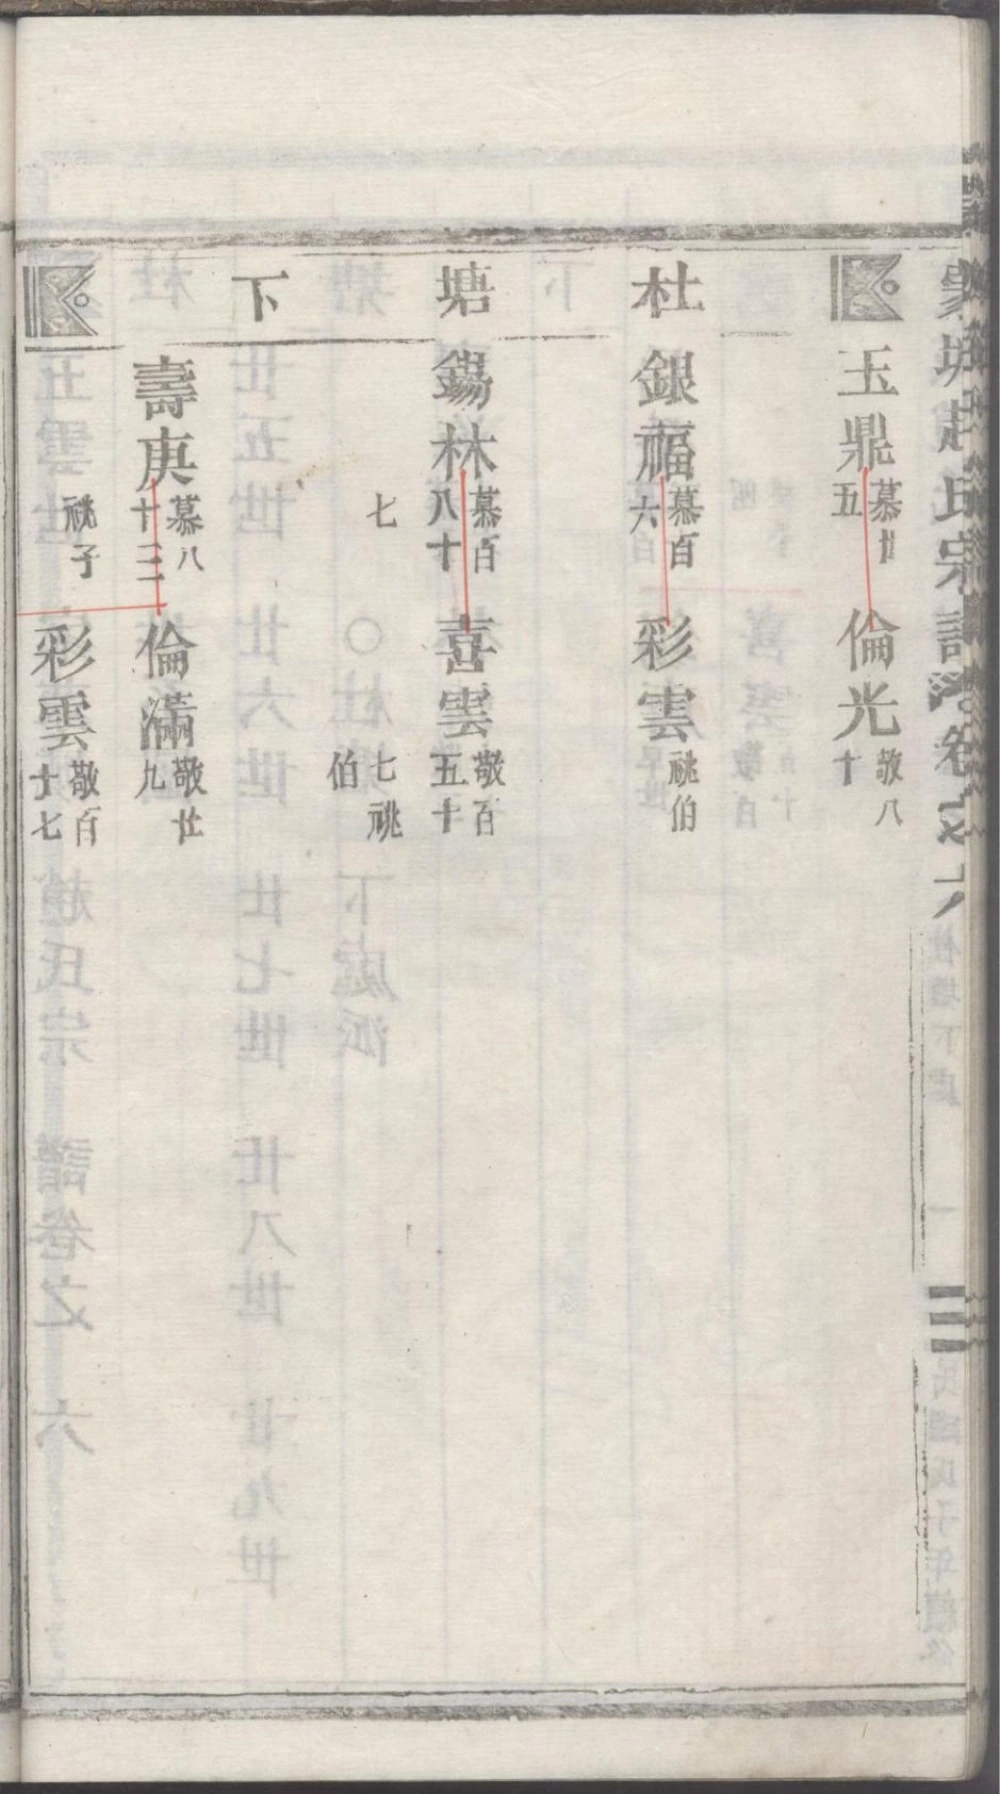 趙氏宗譜 卷之六
杜塘下處
杜
塘
下
玉鼎 慕廿五
倫光 敬八十
銀福 慕百六
彩雲 祧伯
錫林 慕百八十七
喜雲 敬百五十七 祧伯
壽庚 慕八十三
倫滿 敬廿九
祧子
彩雲 敬百十七